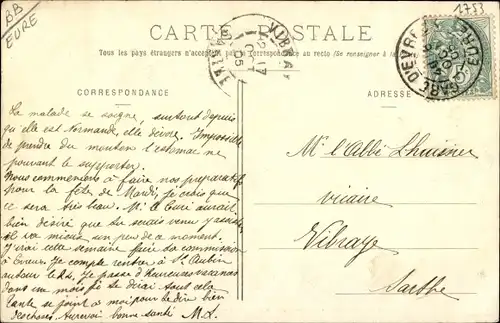 BB
EURE
1733
CARTE POSTALE
Tous les pays étrangers n'acceptent pas la correspondance au recto (Se renseigner à la
CORRESPONDANCE
ADRESSE
La malade se soigne, surtout depuis
qu'elle est Normande, elle dévore. Impossible
de prendre du mouton l'estomac ne
pouvant le supporter.
Nous commençons à faire nos préparatifs
pour la fête de Mardi, je crois que
ce sera très beau. M. le Curé aurait
bien désiré que tu serais venu y assister
il va mieux un peu de ce moment.
J'irai cette semaine faire ta commission
à Evreux. Je compte rentrer à St Aubin
autour le 24. Je passe d'heureuses vacances
dans un mois je te dirai tout cela
Tante se joint à moi pour te dire bien
des choses. Aurevoir bonne santé M. L.
Mr l'Abbé Lhuissier
vicaire
Vibraye
Sarthe
VIBRAYE
GARE D'EVREUX
EURE